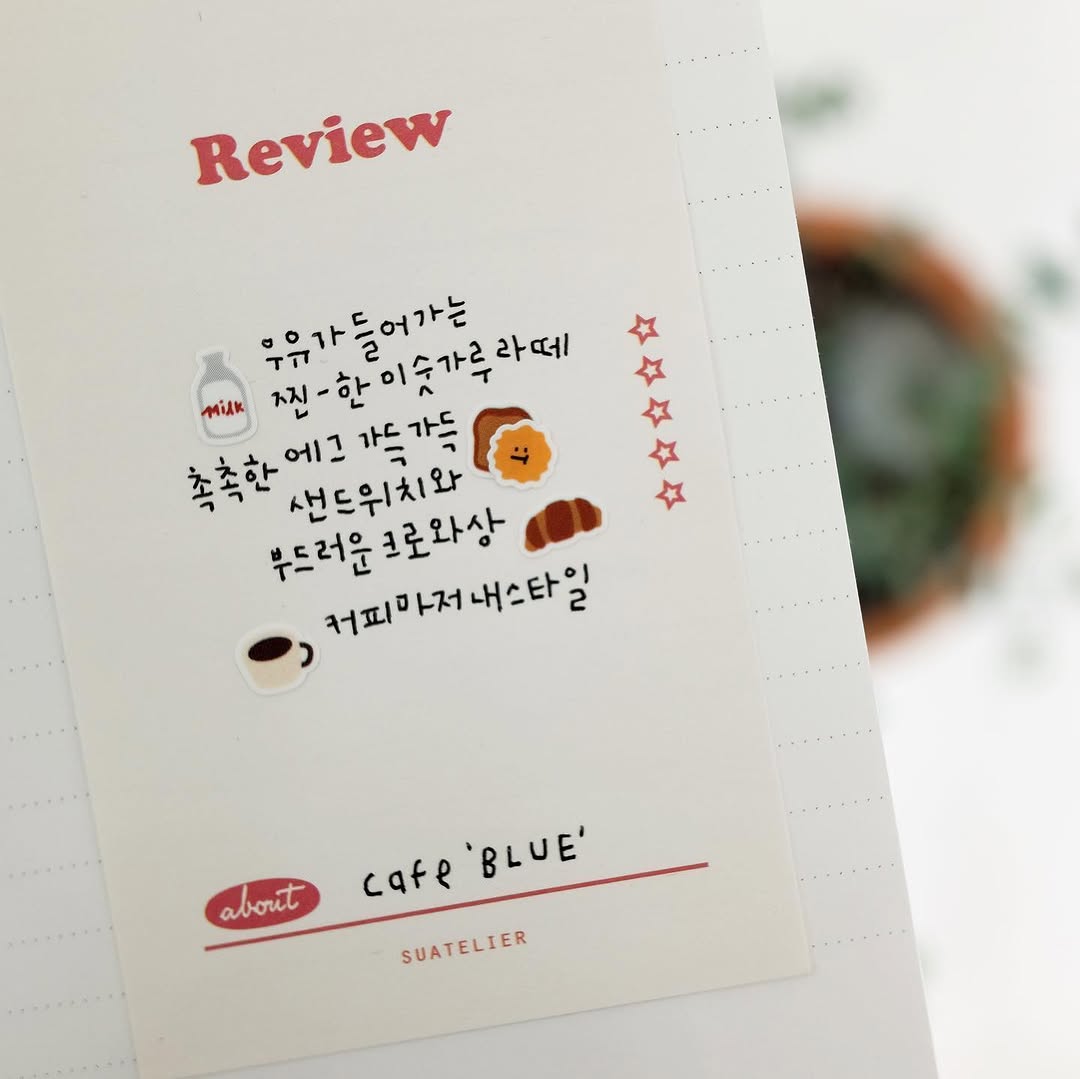 Review
우유가 들어가는
찐-한 미숫가루 라떼
MiLK
촉촉한 에그 가득가득
샌드위치와
부드러운 크로와상
커피마저 내스타일
about cafe 'BLUE'
SUATELIER